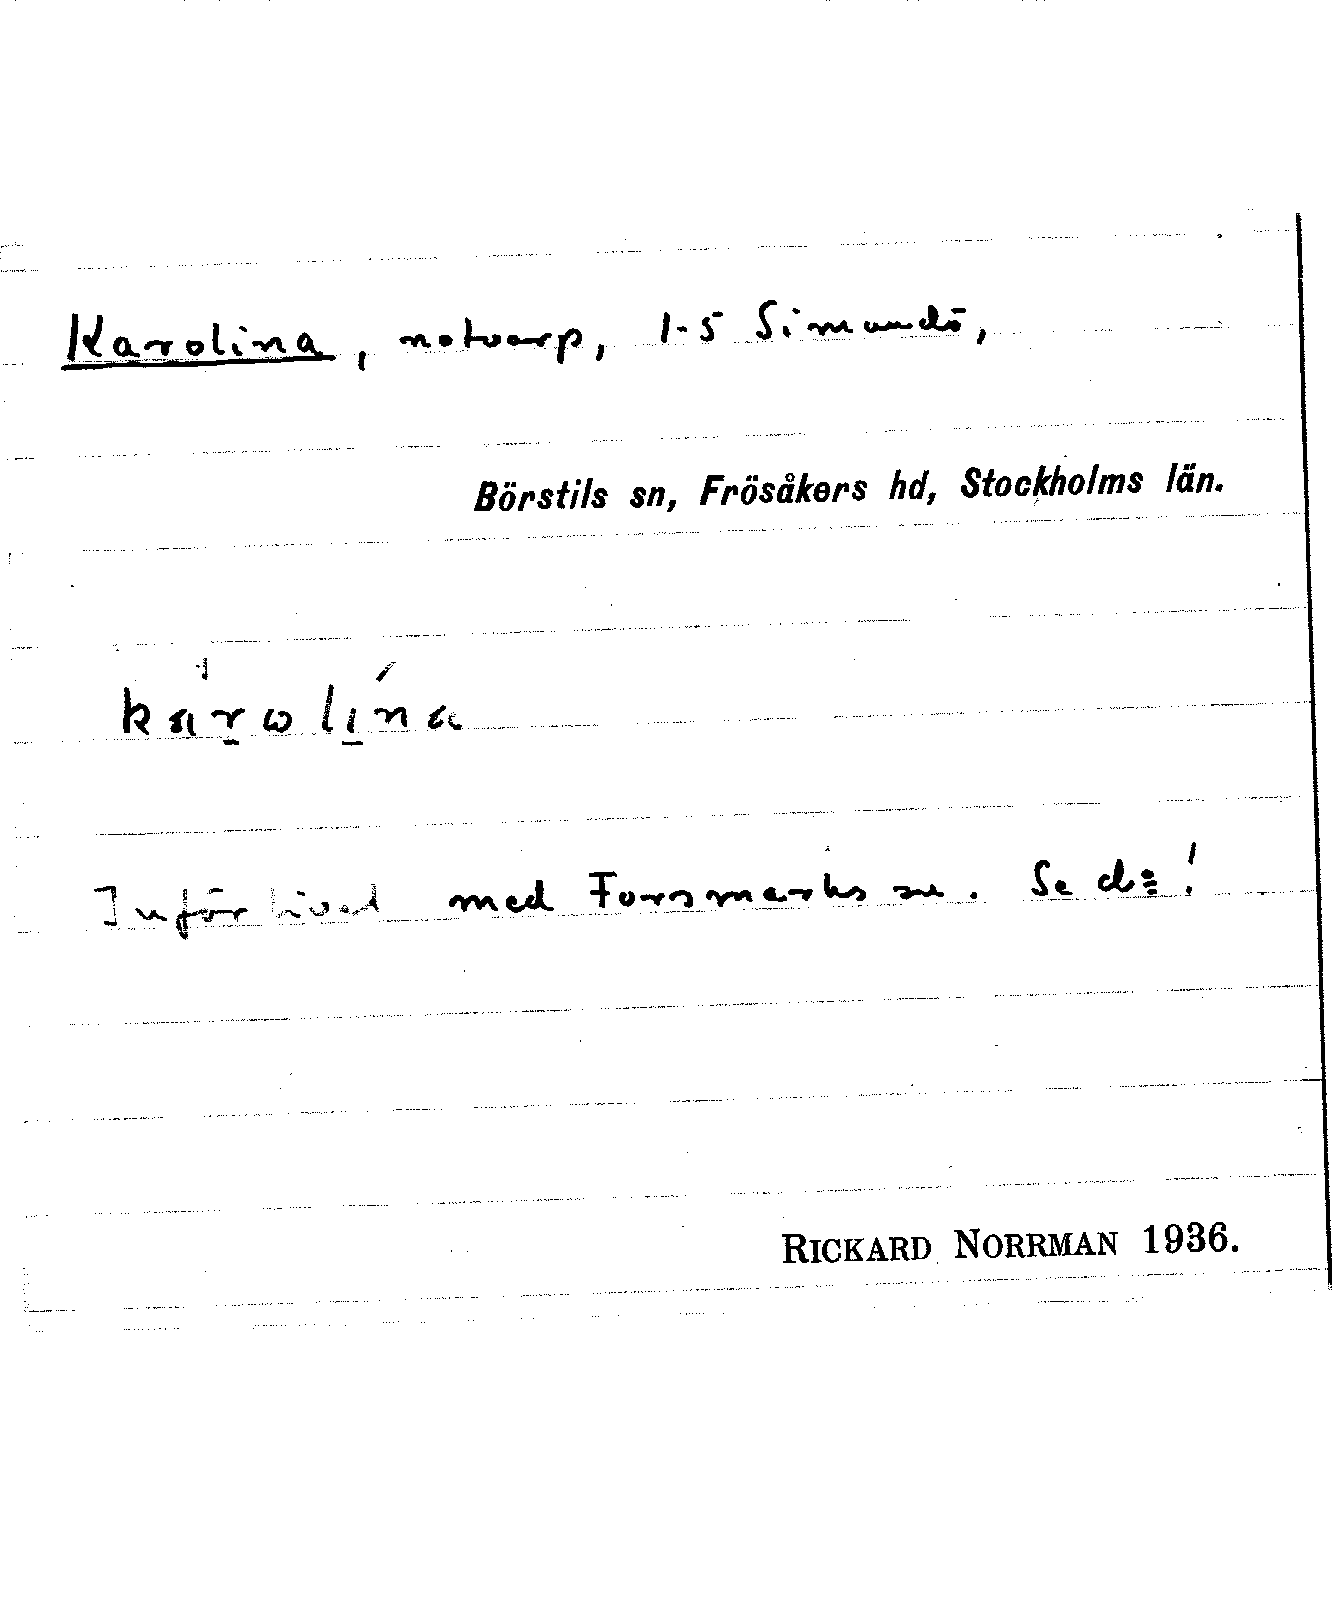 Karolina, notvarp, 1-5 Simundö,
Börstils sn, Frösåkers hd, Stockholms län.
Införlivad med Forsmarks sn. Se d:o!
RICKARD NORRMAN 1936.